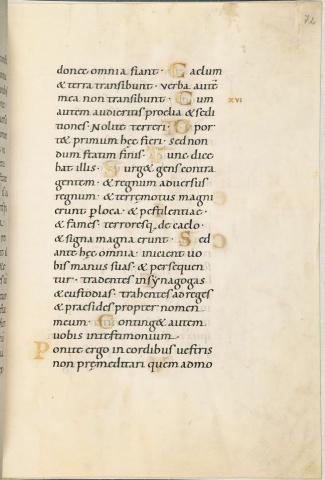 72
donec omnia fiant· Caelum
& terra transibunt· verba autē
mea non transibunt· Cum
XVI
autem audieritis proelia & sedi
tiones· Nolite terreri· Opor
t& primum hęc fieri· sed non
dum statim finis· Tunc dice
bat illis· Surg& gens contra
gentem· & regnum adversus
regnum· & terręmotus magni
erunt p loca· & pestilentiae·
& fames· terroresq· de caelo·
& signa magna erunt· Sed
ante hęc omnia· inicient vo
bis manus suas· & persequen
tur· tradentes in synagogas
& custodias· trahentes ad reges
& praesides propter nomen
meum· Conting& autem
vobis in testimonium·
Ponite ergo in cordibus vestris
non pręmeditari quem admo